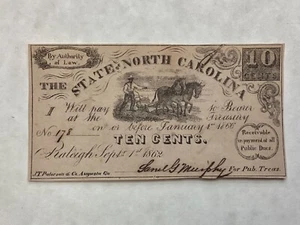 By Authority
of Law.
10
CENTS
THE STATE OF NORTH CAROLINA
Will pay to Bearer
at the Treasury
on or before January 1st 1866
No. 178
TEN CENTS.
Raleigh Sept. 1st 1862
Receivable
in payment of all
Public Dues.
Saml G Murphy For Pub. Treas.
J.T. Paterson & Co. Augusta Ga.